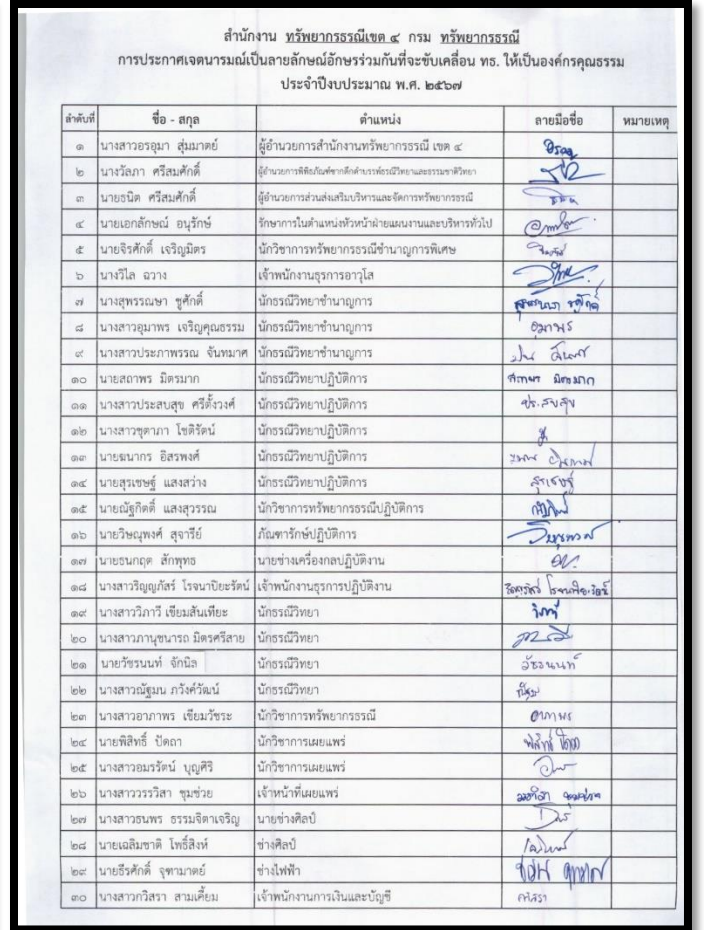 สำนักงาน ทรัพยากรธรณีเขต ๔ กรม ทรัพยากรธรณี
การประกาศเจตนารมณ์เป็นลายลักษณ์อักษรร่วมกันที่จะขับเคลื่อน ทธ. ให้เป็นองค์กรคุณธรรม
ประจำปีงบประมาณ พ.ศ. ๒๕๖๗
ลำดับที่ ชื่อ - สกุล ตำแหน่ง ลายมือชื่อ หมายเหตุ
๑ นางสาวอรอุมา สุ่มมาตย์ ผู้อำนวยการสำนักงานทรัพยากรธรณี เขต ๔
๒ นางวัลภา ศรีสมศักดิ์ ผู้อำนวยการพิพิธภัณฑ์ซากดึกดำบรรพ์ธรณีวิทยาและธรรมชาติวิทยา
๓ นายธนิต ศรีสมศักดิ์ ผู้อำนวยการส่วนส่งเสริมบริหารและจัดการทรัพยากรธรณี
๔ นายเอกลักษณ์ อนุรักษ์ รักษาการในตำแหน่งหัวหน้าฝ่ายแผนงานและบริหารทั่วไป
๕ นายจิรศักดิ์ เจริญมิตร นักวิชาการทรัพยากรธรณีชำนาญการพิเศษ
๖ นางวิไล ฉวาง เจ้าพนักงานธุรการอาวุโส
๗ นางสุพรรณษา ชูศักดิ์ นักธรณีวิทยาชำนาญการ
๘ นางสาวอุมาพร เจริญคุณธรรม นักธรณีวิทยาชำนาญการ อุมาพร
๙ นางสาวประภาพรรณ จันทมาศ นักธรณีวิทยาชำนาญการ
๑๐ นายสถาพร มิตรมาก นักธรณีวิทยาปฏิบัติการ สถาพร มิตรมาก
๑๑ นางสาวประสบสุข ศรีตั้งวงศ์ นักธรณีวิทยาปฏิบัติการ ประสบสุข
๑๒ นางสาวชุตาภา โชติรัตน์ นักธรณีวิทยาปฏิบัติการ
๑๓ นายฆนากร อิสรพงศ์ นักธรณีวิทยาปฏิบัติการ
๑๔ นายสุรเชษฐ์ แสงสว่าง นักธรณีวิทยาปฏิบัติการ สุรเชษฐ์
๑๕ นายณัฐกิตติ์ แสงสุวรรณ นักวิชาการทรัพยากรธรณีปฏิบัติการ
๑๖ นายวิษณุพงศ์ สุจารีย์ ภัณฑารักษ์ปฏิบัติการ
๑๗ นายธนกฤต สักพุทธ นายช่างเครื่องกลปฏิบัติงาน
๑๘ นางสาวริญญภัสร์ โรจนาปิยะรัตน์ เจ้าพนักงานธุรการปฏิบัติงาน
๑๙ นางสาววิภาวี เขียมสันเทียะ นักธรณีวิทยา
๒๐ นางสาวภานุชนารถ มิตรศรีสาย นักธรณีวิทยา
๒๑ นายวัชรนนท์ จักนิล นักธรณีวิทยา วัชรนนท์
๒๒ นางสาวณัฐมน ภวังค์วัฒน์ นักธรณีวิทยา
๒๓ นางสาวอาภาพร เขียมวัชระ นักวิชาการทรัพยากรธรณี อาภาพร
๒๔ นายพิสิทธิ์ ปัดถา นักวิชาการเผยแพร่
๒๕ นางสาวอมรรัตน์ บุญศิริ นักวิชาการเผยแพร่
๒๖ นางสาววรรวิสา ชุมช่วย เจ้าหน้าที่เผยแพร่
๒๗ นางสาวธนพร ธรรมจิตาเจริญ นายช่างศิลป์
๒๘ นายเฉลิมชาติ โพธิ์สิงห์ ช่างศิลป์
๒๙ นายธีรศักดิ์ จุฑามาตย์ ช่างไฟฟ้า
๓๐ นางสาวกวิสรา สามเคี้ยม เจ้าพนักงานการเงินและบัญชี กวิสรา